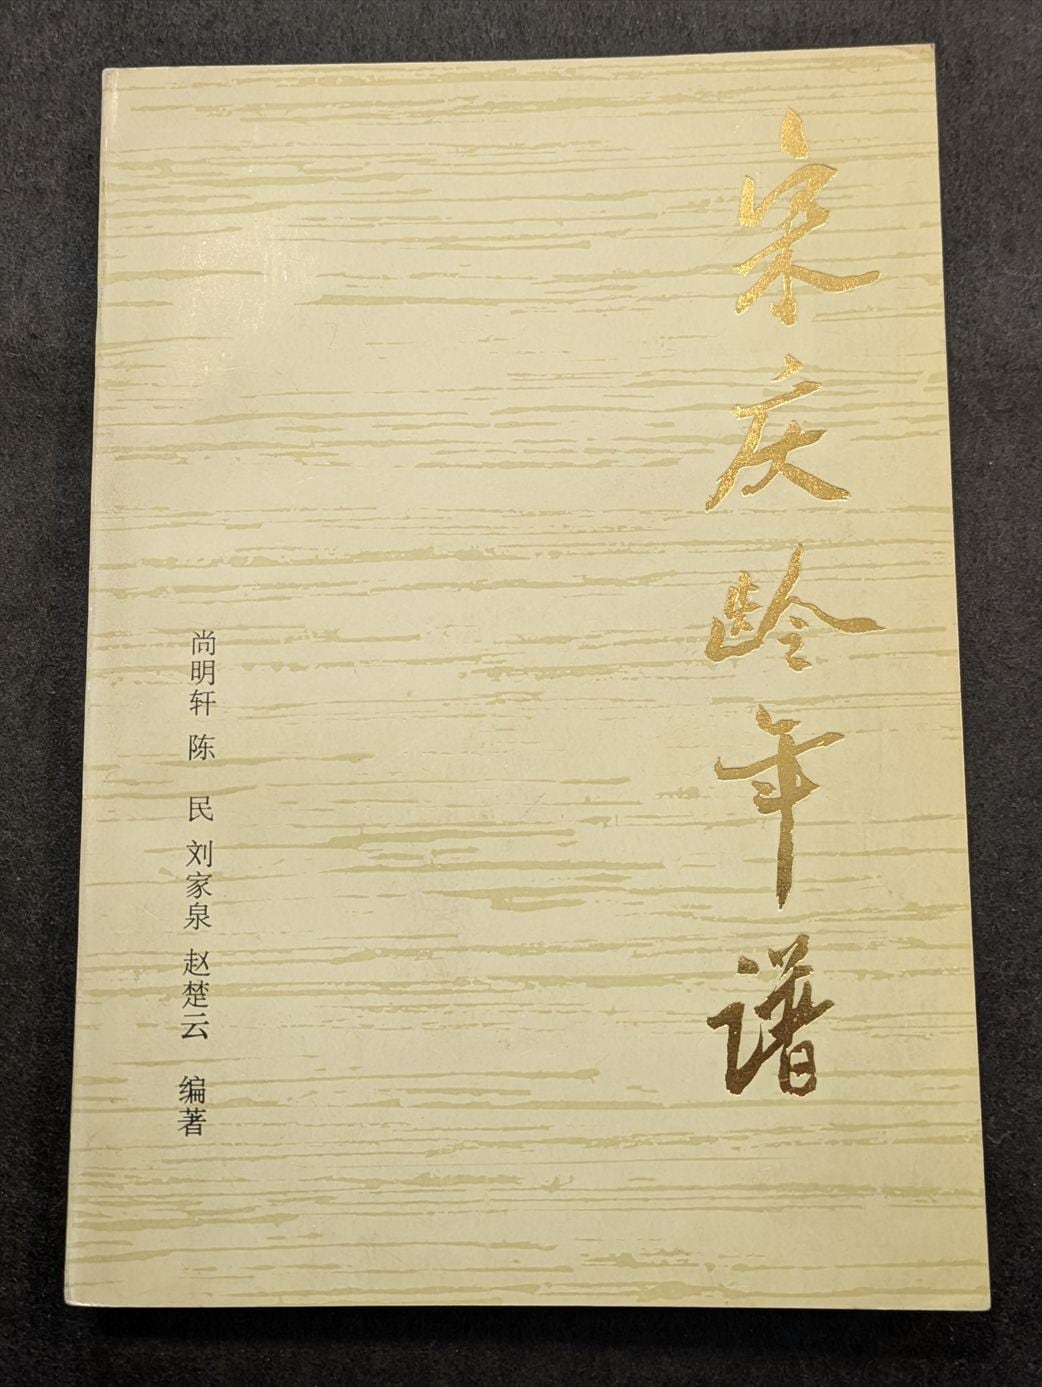 宋庆龄年谱
尚明轩 陈 民 刘家泉 赵楚云 编著